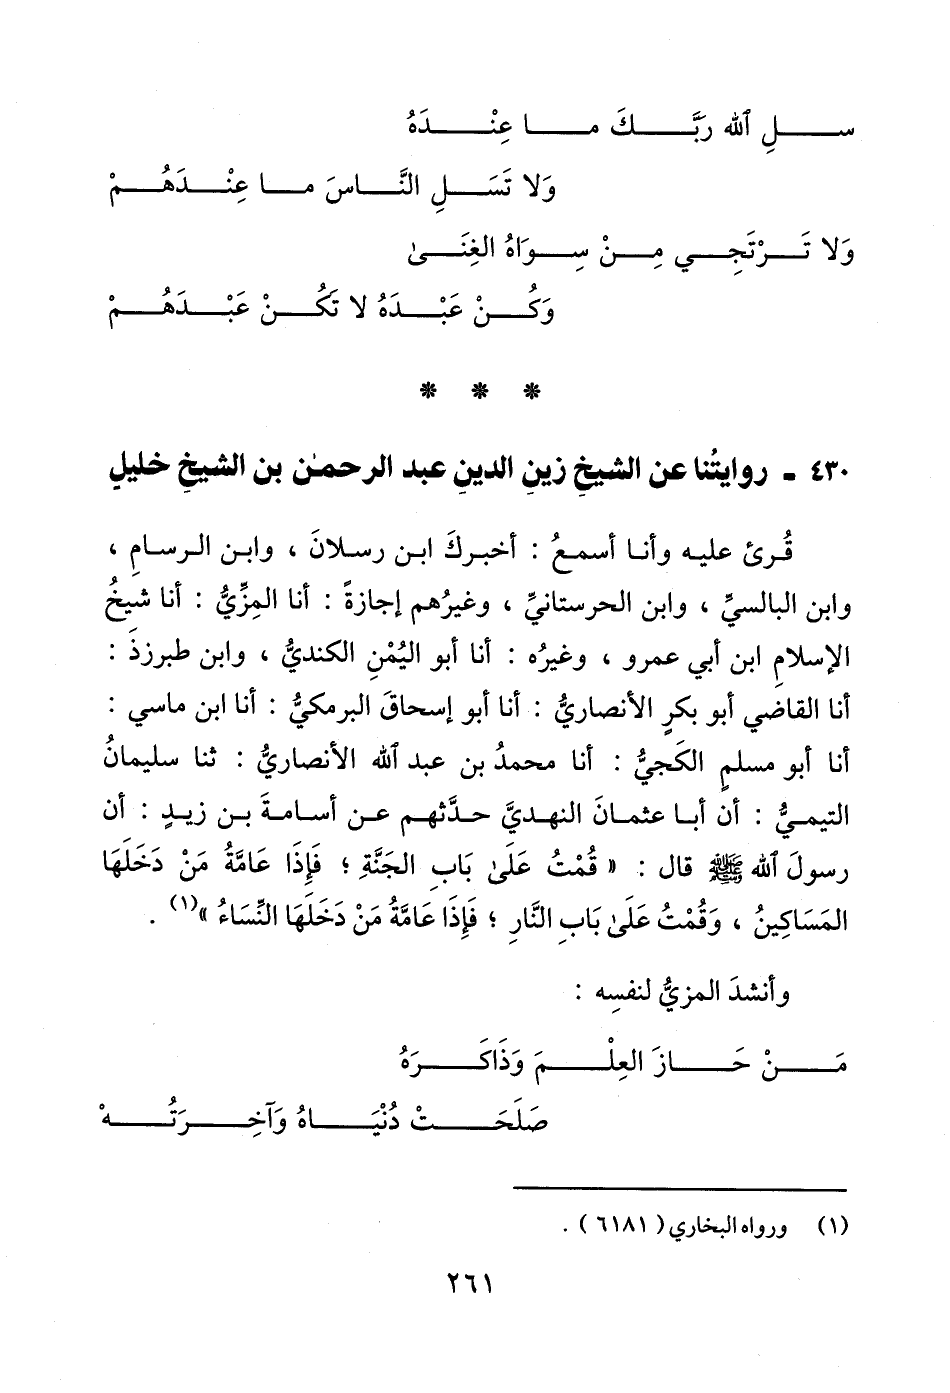 سلِ ٱلله رَبَّكَ ما عِنْدَهُ
وَلا تَسَلِ النَّاسَ ما عِنْدَهُمْ
وَلا تَرْتَجِي مِنْ سِوَاهُ الغِنَىٰ
وَكُنْ عَبْدَهُ لا تَكُنْ عَبْدَهُمْ
* * *
٤٣٠ - روايتُنا عن الشيخِ زينِ الدينِ عبد الرحمٰن بن الشيخِ خليلٍ
قُرئ عليه وأنا أسمعُ : أخبركَ ابن رسلانَ ، وابن الرسامِ ،
وابن البالسيِّ ، وابن الحرستانيِّ ، وغيرُهم إجازةً : أنا المِزِّيُّ : أنا شيخُ
الإسلامِ ابن أبي عمرو ، وغيرُه : أنا أبو اليُمْنِ الكنديُّ ، وابن طبرزذَ :
أنا القاضي أبو بكرٍ الأنصاريُّ : أنا أبو إسحاقَ البرمكيُّ : أنا ابن ماسي :
أنا أبو مسلمٍ الكَجيُّ : أنا محمدُ بن عبد ٱلله الأنصاريُّ : ثنا سليمانُ
التيميُّ : أن أبا عثمانَ النهديَّ حدَّثهم عن أسامةَ بن زيدٍ : أن
رسولَ ٱلله ﷺ قال : « قُمْتُ عَلَىٰ بَابِ الجَنَّةِ ؛ فَإِذَا عَامَّةُ مَنْ دَخَلَهَا
المَسَاكِينُ ، وَقُمْتُ عَلَىٰ بَابِ النَّارِ ؛ فَإِذَا عَامَّةُ مَنْ دَخَلَهَا النِّسَاءُ »(١) .
وأنشدَ المزيُّ لنفسِه :
مَنْ حَازَ العِلْمَ وَذَاكَرَهُ
صَلَحَتْ دُنْيَاهُ وَآخِرَتُهْ
(١) ورواه البخاري ( ٦١٨١ ) .
٢٦١